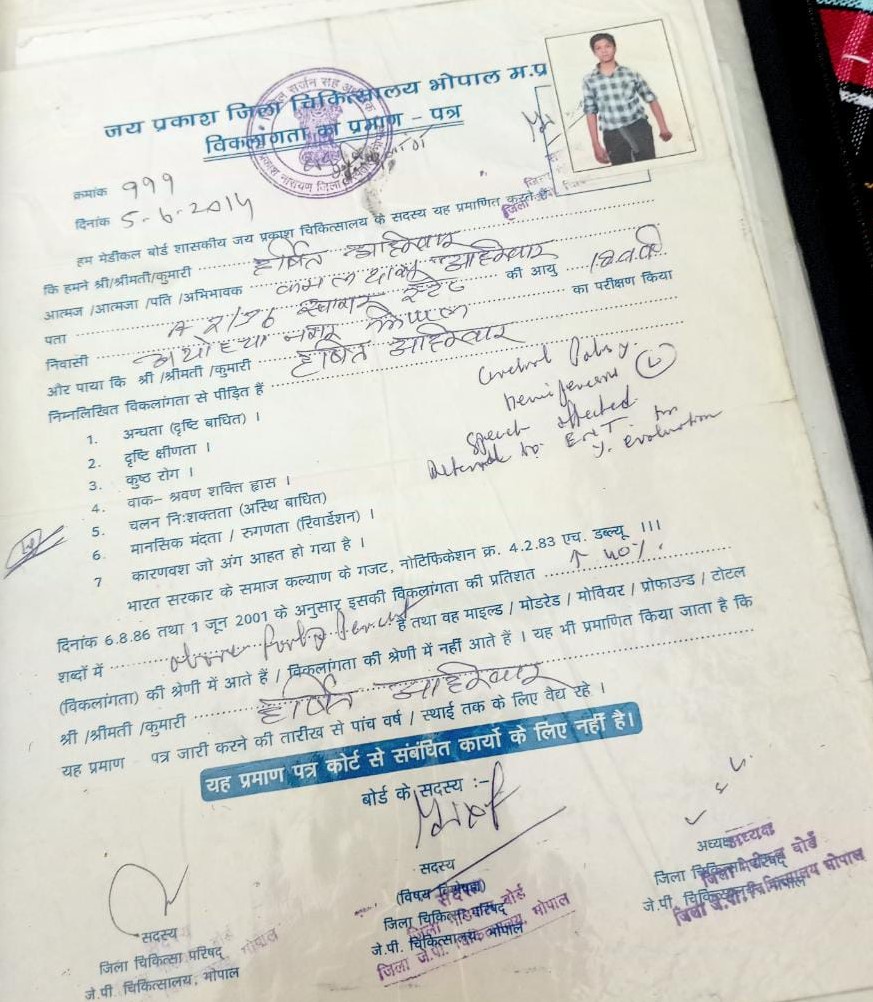 जय प्रकाश जिला चिकित्सालय भोपाल म.प्र
विकलांगता का प्रमाण – पत्र
क्रमांक 999
दिनांक 5-6-2014
हम मेडीकल बोर्ड शासकीय जय प्रकाश चिकित्सालय के सदस्य यह प्रमाणित करते हैं
कि हमने श्री/श्रीमती/कुमारी हर्षित अहिरवार
आत्मज /आत्मजा /पति /अभिभावक अहिरवार की आयु 18
पता A का परीक्षण किया
निवासी अयोध्या नगर भोपाल
और पाया कि श्री /श्रीमती /कुमारी हर्षित अहिरवार
निम्नलिखित विकलांगता से पीड़ित हैं
Cerebral Palsy
Hemiparesis (L)
Speech affected
Referred to ENT for evaluation
1. अन्धता (दृष्टि बाधित) ।
2. दृष्टि क्षीणता ।
3. कुष्ठ रोग ।
4. वाक– श्रवण शक्ति ह्रास ।
5. चलन निःशक्तता (अस्थि बाधित)
6. मानसिक मंदता / रुगणता (रिवार्डेशन) ।
7 कारणवश जो अंग आहत हो गया है ।
भारत सरकार के समाज कल्याण के गजट, नोटिफिकेशन क्र. 4.2.83 एच. डब्ल्यू. III
दिनांक 6.8.86 तथा 1 जून 2001 के अनुसार इसकी विकलांगता की प्रतिशत ↑ 40%
शब्दों में above forty percent है तथा वह माइल्ड / मोडरेड / मोवियर / प्रोफाउन्ड / टोटल
(विकलांगता) की श्रेणी में आते हैं / विकलांगता की श्रेणी में नहीं आते हैं । यह भी प्रमाणित किया जाता है कि
श्री /श्रीमती /कुमारी हर्षित अहिरवार
यह प्रमाण पत्र जारी करने की तारीख से पांच वर्ष / स्थाई तक के लिए वैद्य रहे ।
यह प्रमाण पत्र कोर्ट से संबंचित कार्यो के लिए नहीं है।
बोर्ड के सदस्य :–
सदस्य
जिला चिकित्सा परिषद्
जे.पी. चिकित्सालय, भोपाल
सदस्य
(विषय विशेषज्ञ)
जिला चिकित्सा परिषद्
जे.पी. चिकित्सालय, भोपाल
अध्यक्ष
जिला चिकित्सा परिषद्
जे.पी. चिकित्सालय, भोपाल